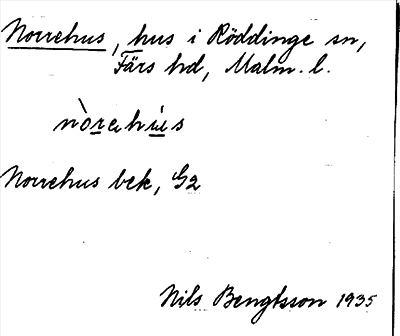 Norrehus, hus i Röddinge sn,
Färs hd, Malm. l.
Norrehus bek, G2
Nils Bengtsson 1935